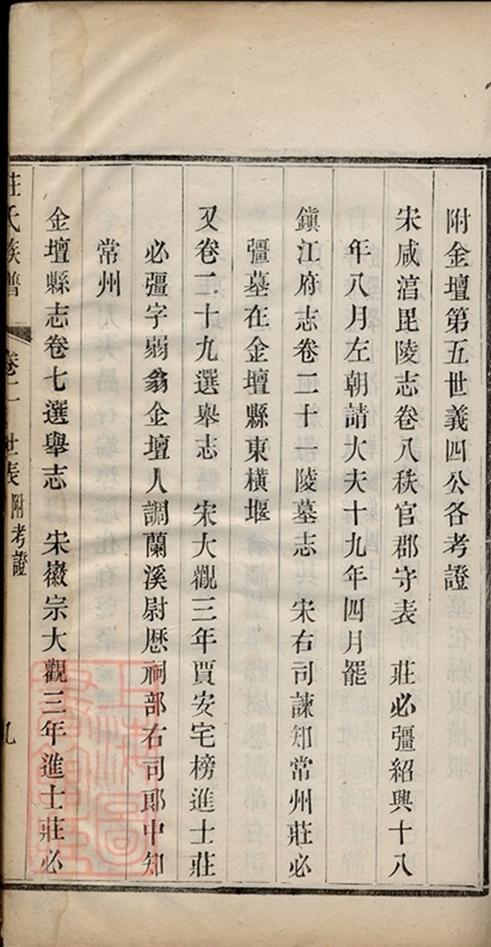 附金壇第五世義四公各考證
宋咸淳毘陵志卷八秩官郡守表　莊必彊紹興十八
年八月左朝請大夫十九年四月罷
鎮江府志卷二十一陵墓志　宋右司諫知常州莊必
彊墓在金壇縣東橫堰
又卷二十九選舉志　宋大觀三年賈安宅榜進士莊
必彊字弱翁金壇人調蘭溪尉歷祠部右司郎中知
常州
金壇縣志卷七選舉志　宋徽宗大觀三年進士莊必
莊氏族譜　卷二　世表附考證　九